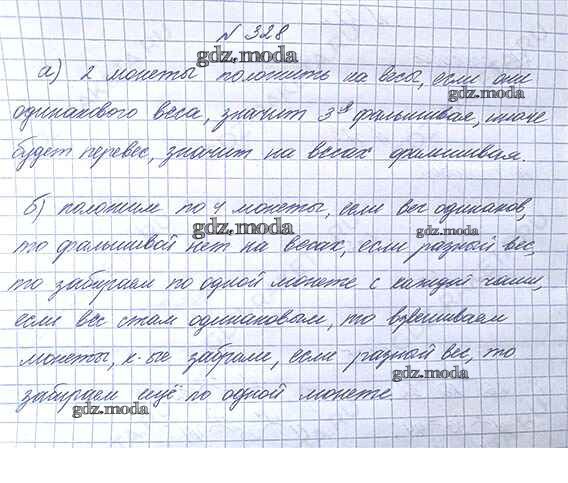 № 328
gdz.moda
а) 2 монеты положить на весы, если они
gdz.moda
одинакового веса, значит 3я фальшивая, иначе
будет перевес, значит на весах фальшивая.
б) положим по 4 монеты, если вес одинаков,
gdz.moda
то фальшивой нет на весах, если разный вес,
gdz.moda
то забираем по одной монете с каждой чаши,
если вес стал одинаковым, то взвешиваем
монеты, к-ые забрали, если разный вес, то
gdz.moda
забираем ещё по одной монете
gdz.moda